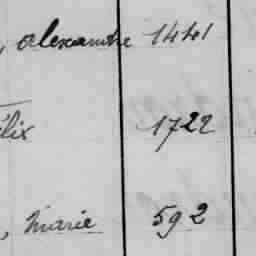 , Alexandre 1441
élix 1722
, Marie 592